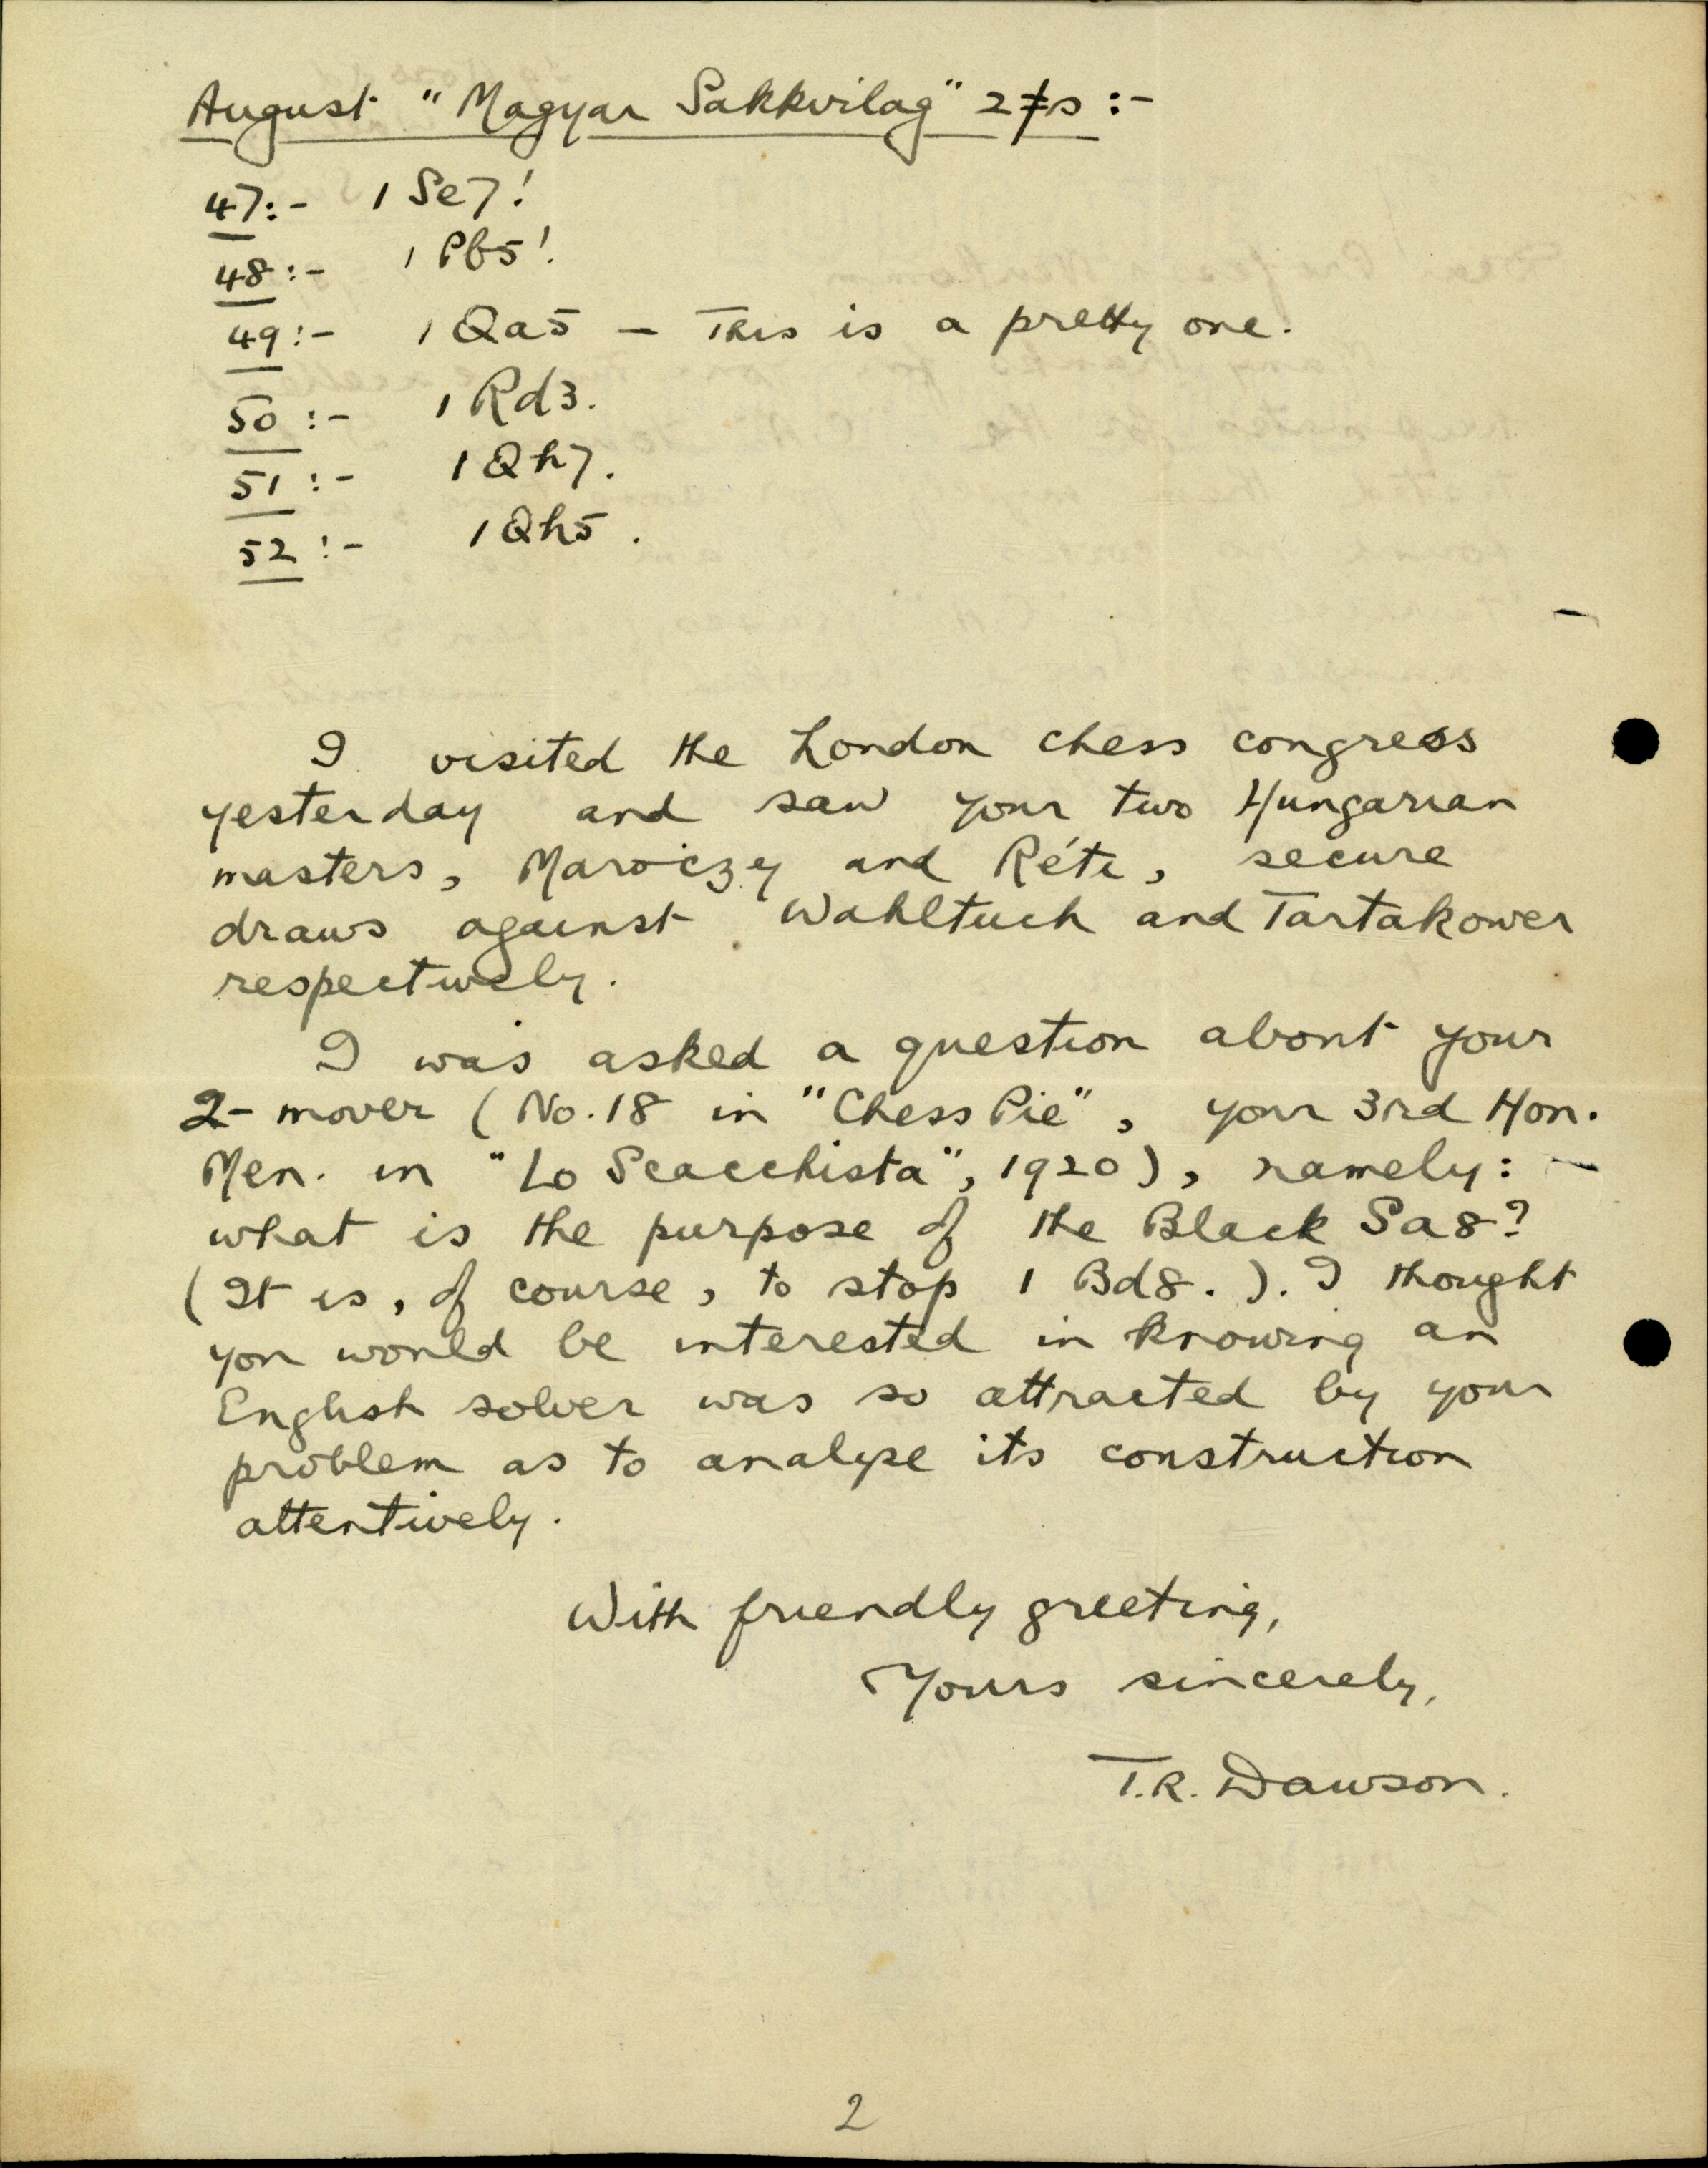 August "Magyar Sakkvilag" 2≠s :-
47:- 1 Se7!
48:- 1 Pb5!
49:- 1 Qa5 — This is a pretty one.
50:- 1 Rd3.
51:- 1 Qh7.
52:- 1 Qh5.
I visited the London chess congress
yesterday and saw your two Hungarian
masters, Maroiczy and Réti, secure
draws against Wahltuch and Tartakower
respectively.
I was asked a question about your
2-mover (No. 18 in "Chess Pie", your 3rd Hon.
Men. in "Lo Scacchista", 1920), namely: —
what is the purpose of the Black Sa8?
(It is, of course, to stop 1 Bd8.). I thought
you would be interested in knowing an
English solver was so attracted by your
problem as to analyse its construction
attentively.
With friendly greeting,
Yours sincerely,
T.R. Dawson.
2